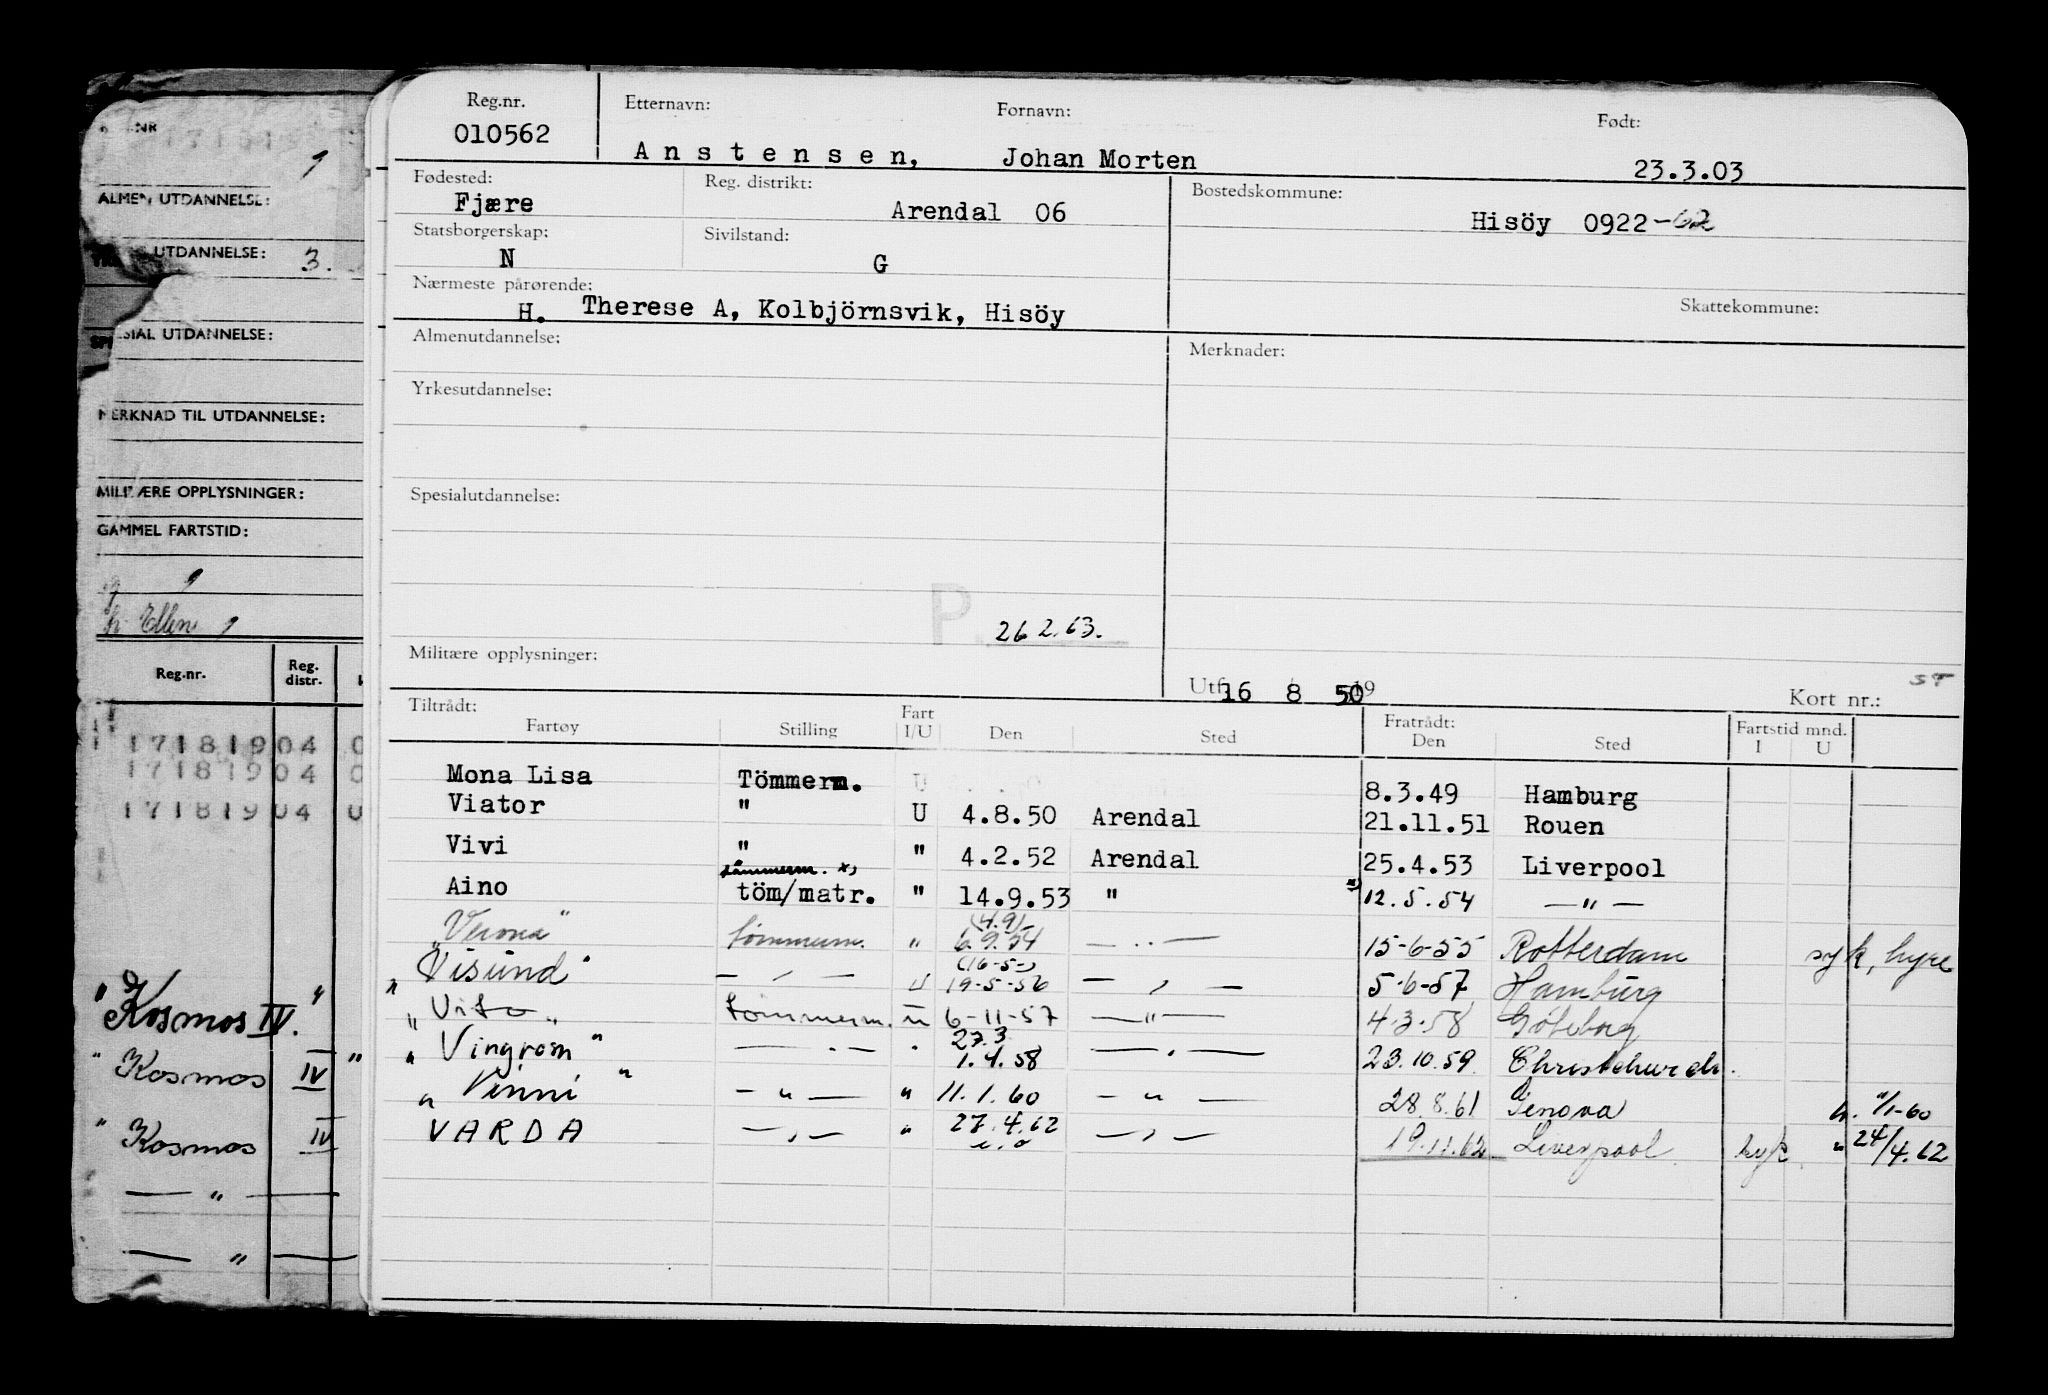 Reg.nr. Etternavn: Fornavn: Født:
010562 Anstensen, Johan Morten 23.3.03
Fødested: Reg. distrikt: Bostedskommune:
Fjære Arendal 06 Hisöy 0922-62
Statsborgerskap: Sivilstand:
N G
Nærmeste pårørende: Skattekommune:
H. Therese A, Kolbjörnsvik, Hisöy
Almenutdannelse: Merknader:
Yrkesutdannelse:
Spesialutdannelse:
P. 26 2.63.
Militære opplysninger:
Utf. 16 8 50 19 Kort nr.:
Tiltrådt: Fart Fratrådt: Fartstid mnd.
Fartøy Stilling I/U Den Sted Den Sted I U
Mona Lisa Tömmerm. U 8.3.49 Hamburg
Viator " U 4.8.50 Arendal 21.11.51 Rouen
Vivi " " 4.2.52 Arendal 25.4.53 Liverpool
tömmerm. x)
Aino töm/matr. " 14.9.53 " x) 12.5.54 — " —
(4.9)
"Verona" tömmerm. " 6.9.54 — " — 15-6-55 Rotterdam syk, hyre
(16-5-)
"Visund" — " — U 19-5-56 — " — 5-6-57 Hamburg
"Vito" tömmerm. u 6-11-57 — " — 4.3.58 Göteborg
27.3
"Vingrom" — " — " 1.4.58 — " — 23.10.59. Christchurch.
"Vinni" — " — " 11.1.60 — " — 28.8.61 Genova h. 11/1-60
VARDA — " — " 27.4.62 — " — 19.11.62 Liverpool syk " 24/4.62
u.o
ALMEN UTDANNELSE:
UTDANNELSE: 3.
SIAL UTDANNELSE:
MERKNAD TIL UTDANNELSE:
MILITÆRE OPPLYSNINGER:
GAMMEL FARTSTID:
Ellen
Reg.nr. Reg. distr.
17181904 0
17181904 0
17181904 0
"Kosmos IV."
" Kosmos IV "
" Kosmos IV
— " —
— " —